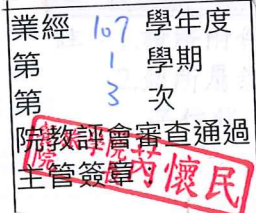 業經 107 學年度
第 1 學期
第 3 次
院教評會審查通過
主管簽章
學院
院長
懷民